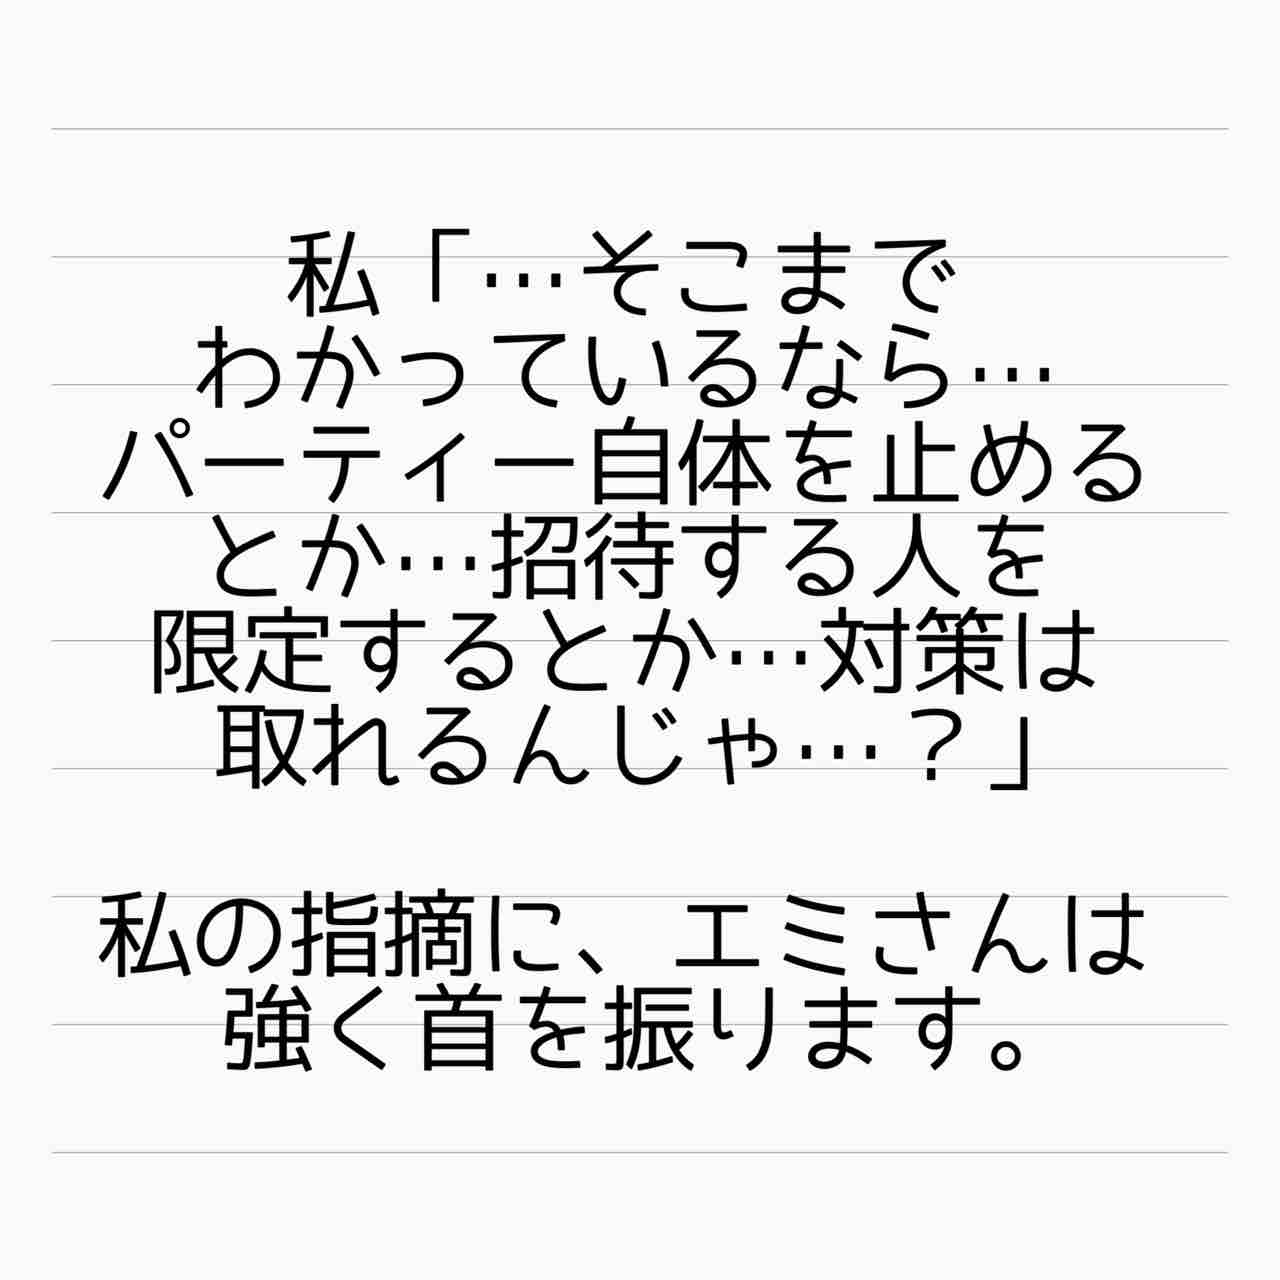 私「…そこまで
わかっているなら…
パーティー自体を止める
とか…招待する人を
限定するとか…対策は
取れるんじゃ…？」
私の指摘に、エミさんは
強く首を振ります。